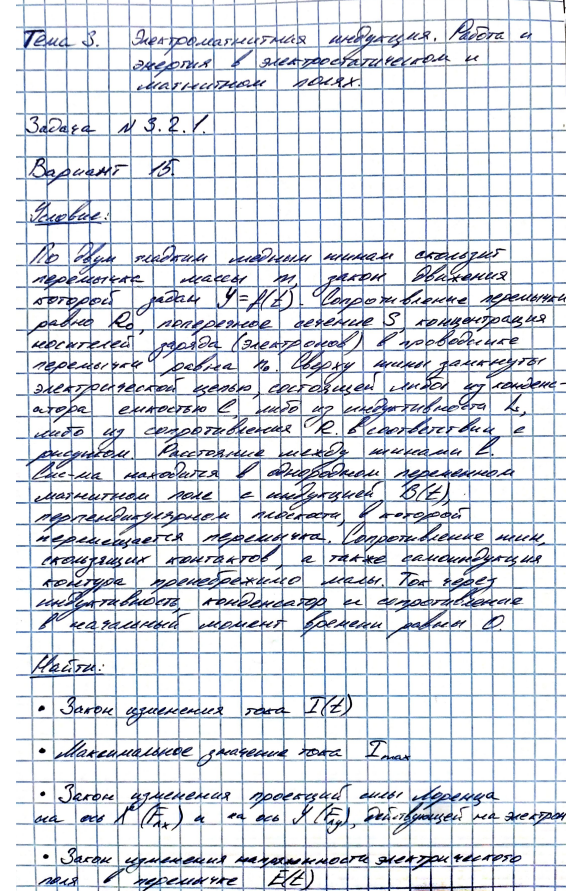 Тема 3. Электромагнитная индукция. Работа и
энергия в электростатическом и
магнитном полях.
Задача № 3.2.1.
Вариант 15.
Условие:
По двум гладким медным шинам скользит
перемычка массы m, закон движения
которой задан y=f(t). Сопротивление перемычки
равно R₀, поперечное сечение S, концентрация
носителей заряда (электронов) в проводнике
перемычки равна n₀. Сверху шины замкнуты
электрической цепью, состоящей либо из конден-
сатора емкостью C, либо из индуктивности L,
либо из сопротивления R. в соответствии с
рисунком. Расстояние между шинами l.
Сис-ма находится в однородном переменном
магнитном поле с индукцией B(t),
перпендикулярном плоскости, в которой
перемещается перемычка. Сопротивление шин,
скользящих контактов, а также самоиндукция
контура пренебрежимо малы. Ток через
индуктивность, конденсатор и сопротивление
в начальный момент времени равны 0.
Найти:
• Закон изменения тока I(t)
• Максимальное значение тока Imax
• Закон изменения проекций силы Лоренца
на ось X (Fлx) и на ось Y (Fлy), действующей на электрон
• Закон изменения напряженности электрического
поля в перемычке E(t)